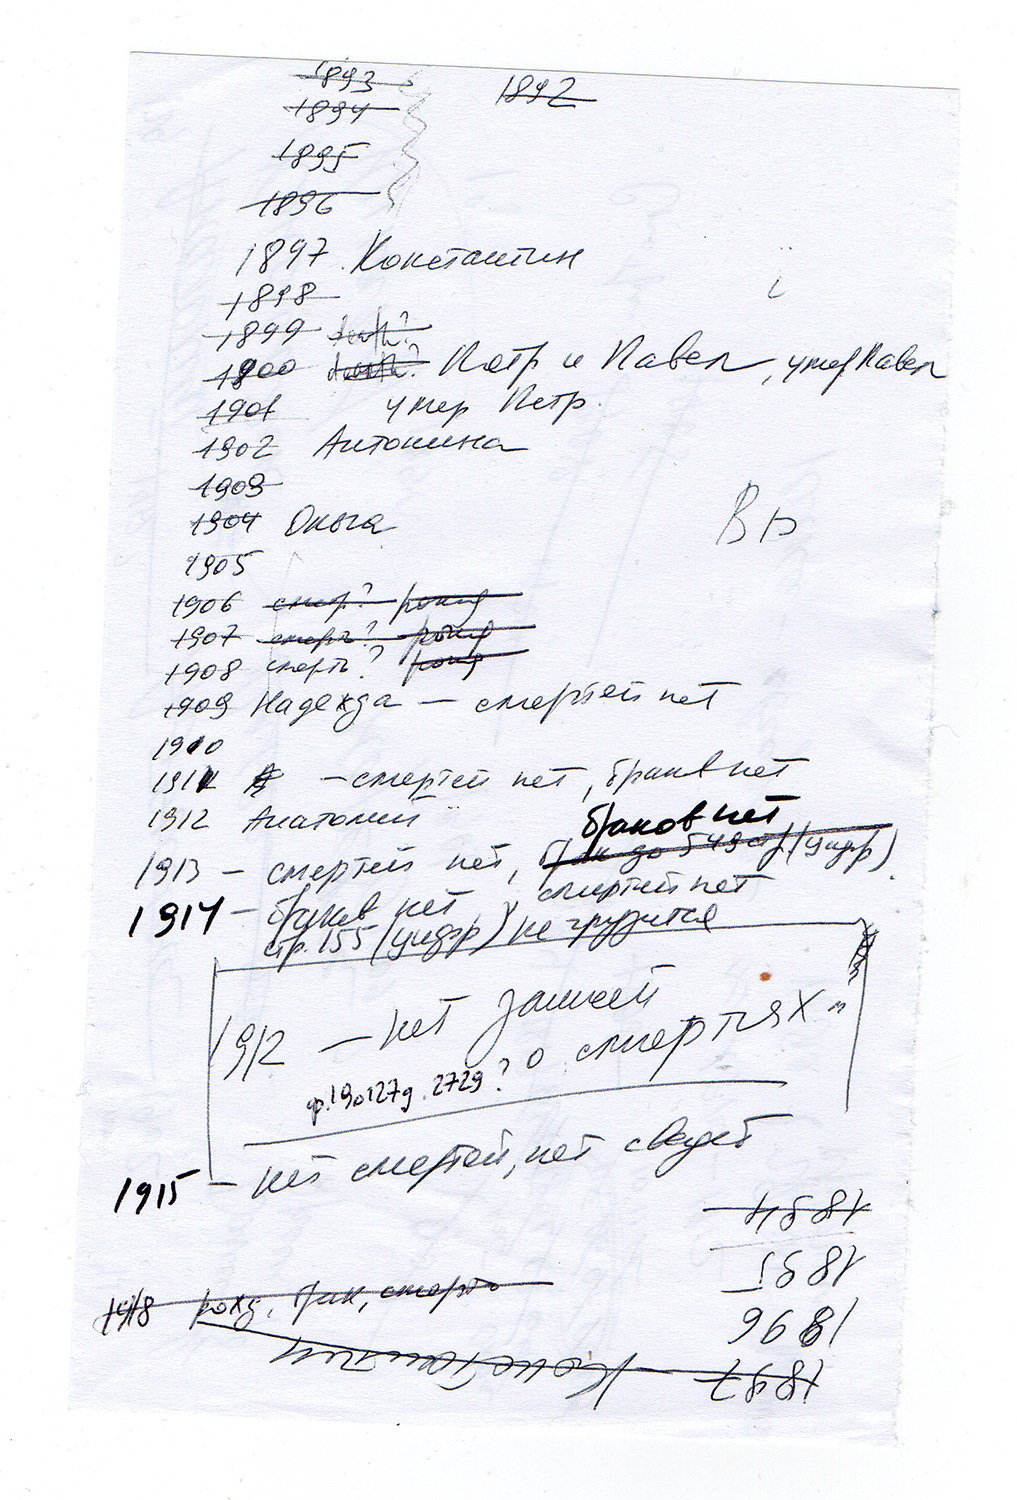 1893 1892
1894
1895
1896
1897 Константин
1898
1899 death?
1900 death? Петр и Павел, умер Павел
1901 умер Петр.
1902 Антонина
1903
1904 Ольга
Вр
1905
1906 смер? рожд
1907 смерть? рожд
1908 смерть? рожд
1909 Надежда – смертей нет
1910
1911 – смертей нет, браков нет
1912 Анатолий
браков нет
1913 – смертей нет, брак до 549 стр (цифр).
1914 – браков нет, смертей нет
стр. 155 (цифр) не грузится
1912 – нет записей
о смертях
ф.19о127д.2729?
1915 – нет смертей, нет свадеб
1894
1895
1918 рожд, брак, смерть
1896
1897 Константин